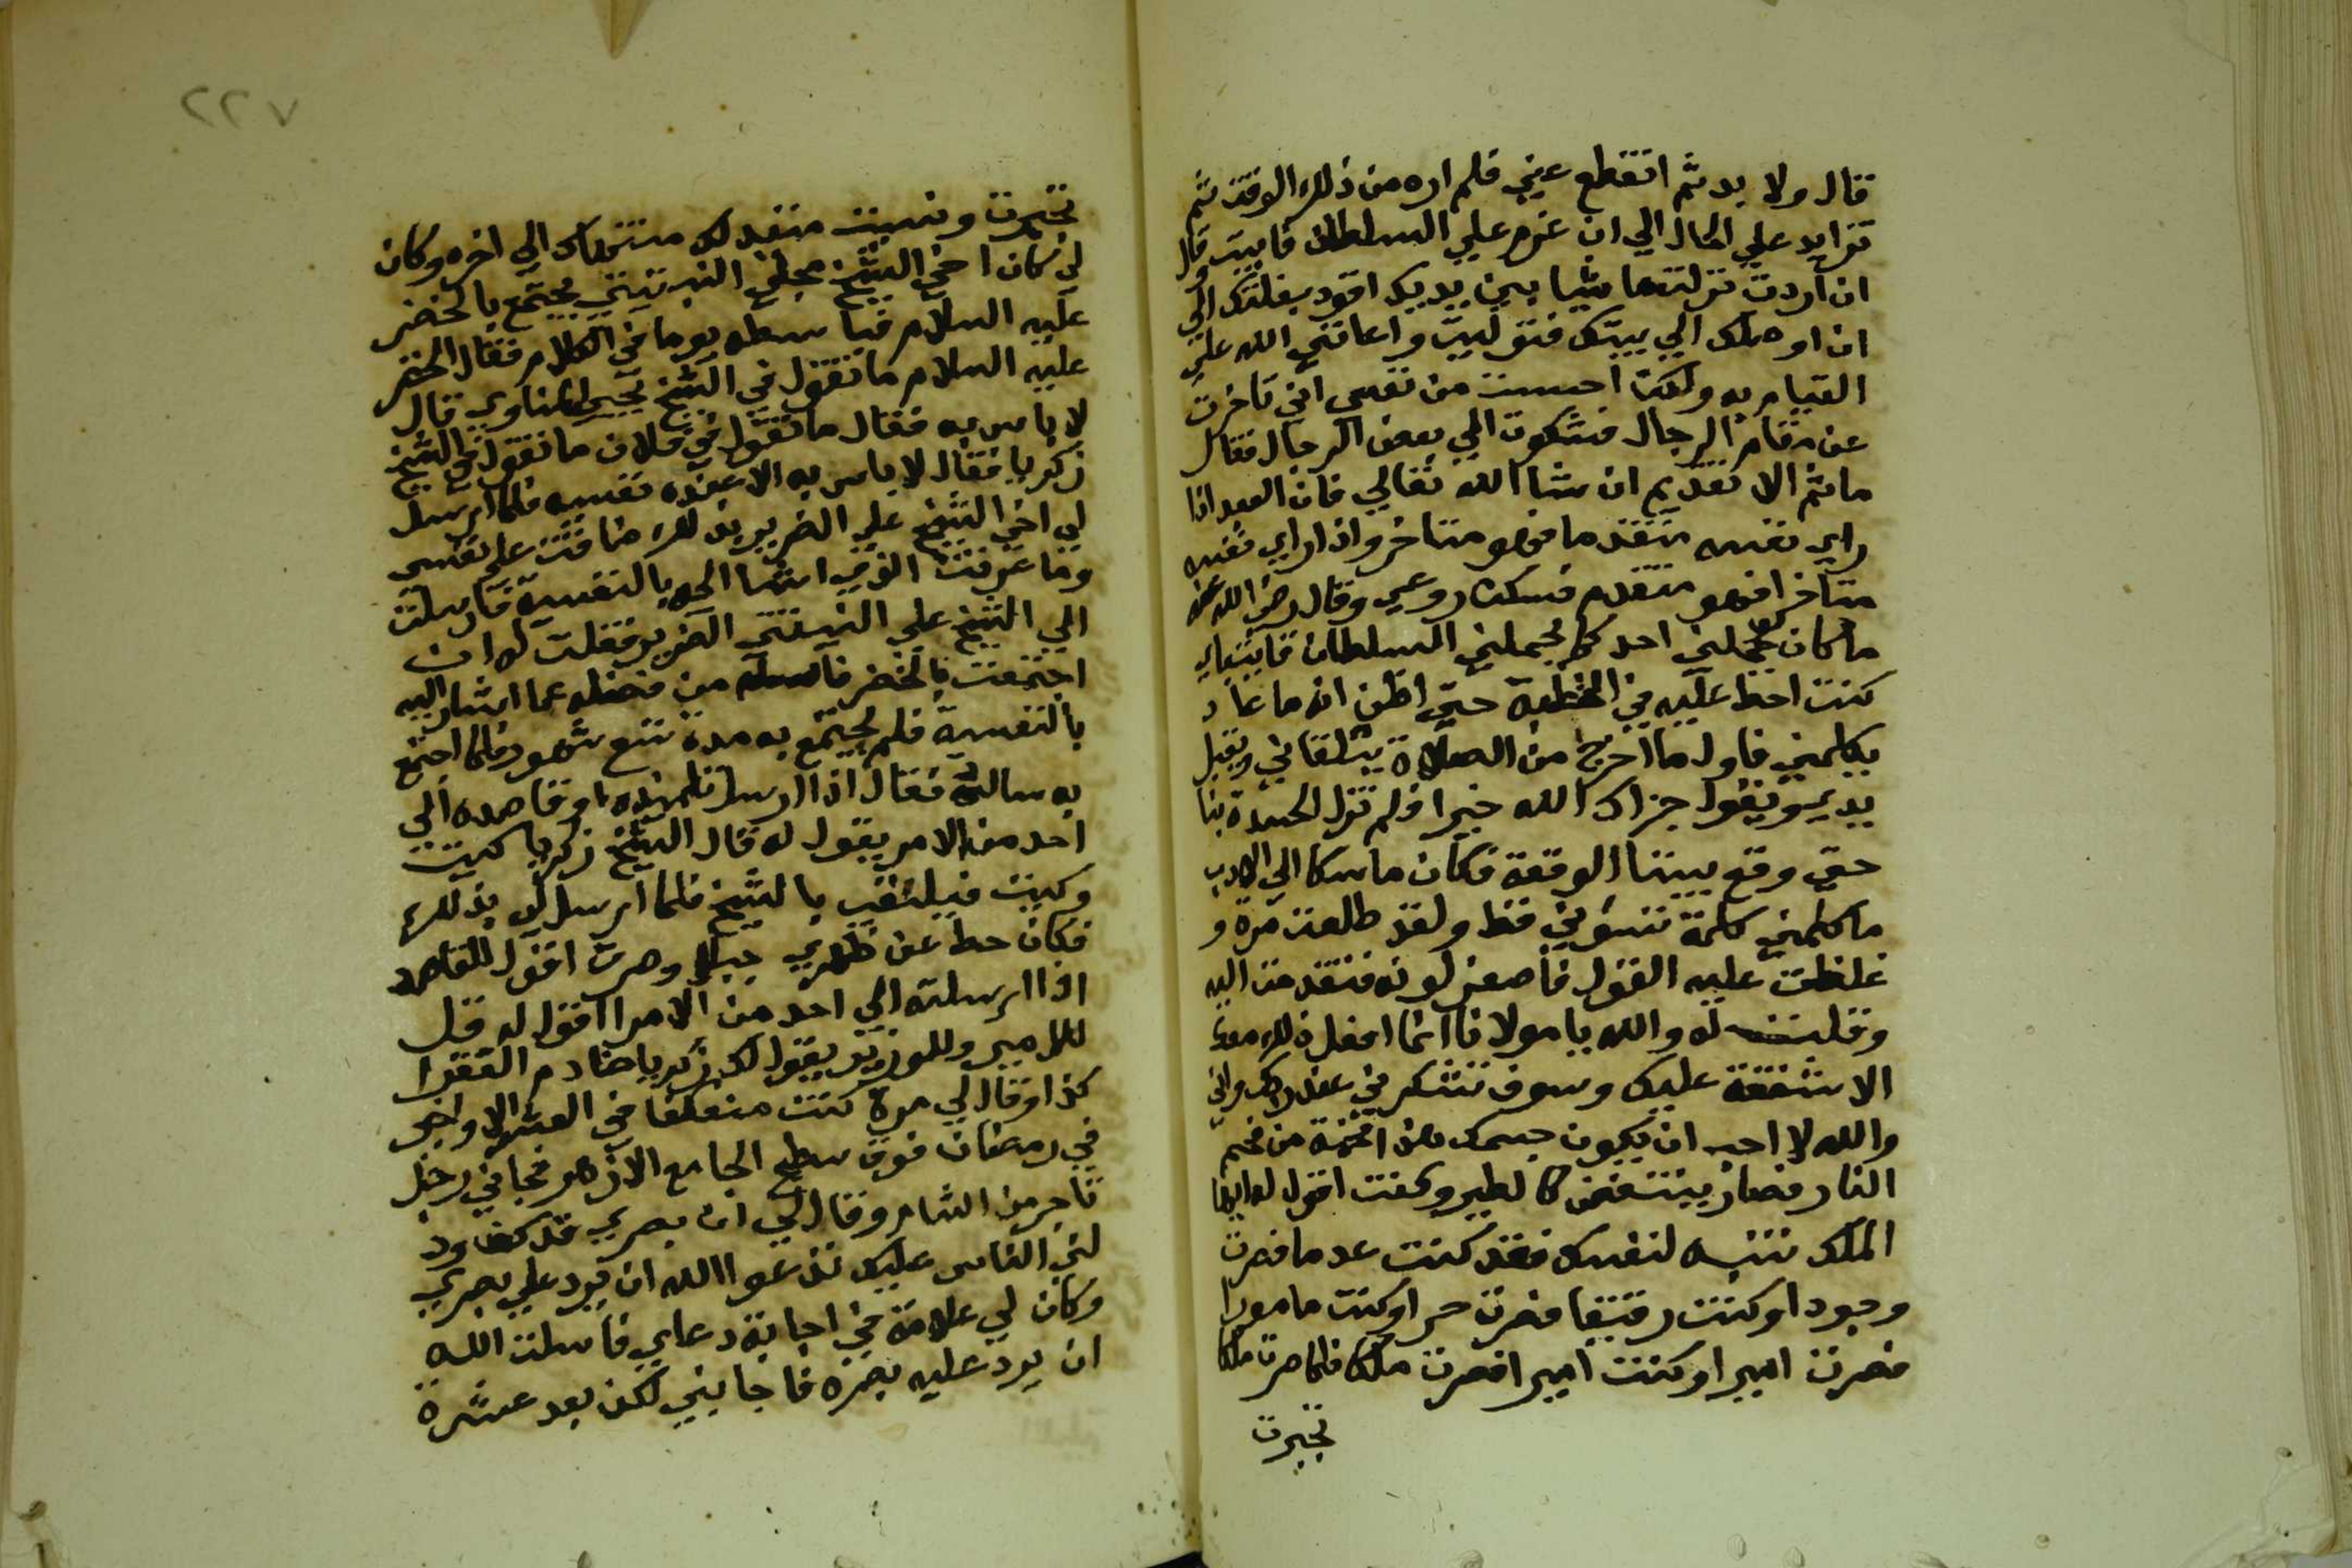 قال ولا بد ثم انقطع عني فلم اره من ذلك الوقت ثم
تزايد علي الحال الي ان عزم علي السلطان فابيت وقال
ان اردت نزلت ماشيا بين يديك اقود بغلتك الي
ان اوصلك الي بيتك فتوليت واعانني الله علي
القيام به ولكن احسست من نفسي اني تاخرت
عن مقام الرجال فشكوت الي بعض الرجال فقال
ماثم الا تقديم ان شا الله تعالي فان العبد اذا
راي نفسه متقدما فهو متاخر واذا راي نفسه
متاخرا فهو متقدم فسكن روعي وقال رضي الله عنه
ما كان يحملني احد كما يحملني السلطان قايتباي
كنت احط عليه في الخطبة حتي اظن انه ما عاد
يكلمني فاول ما اخرج من الصلاة يتلقاني ويقبل
يدي ويقول جزاك الله خيرا فلم تزل الحسدة بنا
حتي وقع بيننا الوقعة فكان ماسكا الي الادب
ما كلمني كلمة تسؤني قط ولقد طلعت مرة و
غلظت عليه القول فاصفر لونه فتقدمت اليه
وقلت له والله يا مولانا انما افعل ذلك معك
الا شفقة عليك وسوف تشكرني عند ربك واني
والله لا احب ان يكون جسمك هذا فحمة من فحم
النار فصار ينتفض كالطير وكنت اقول له ايها
الملك تنبه لنفسك فقد كنت عدما فصرت
وجودا وكنت رقيقا فصرت حرا وكنت مامورا
فصرت اميرا وكنت اميرا فصرت ملكا فلما صرت ملكا
تجبرت
٢٢٧
تجبرت ونسيت مبتداك ومنتهاك الي اخره وكان
لي كان اخي الشيخ علي النبتيتي يجتمع بالخضر
عليه السلام فباسطه يوما في الكلام فقال الخضر
عليه السلام ما تقول في الشيخ يحيي المناوي قال
لا باس به فقال ما تقول في فلان ما تقول في الشيخ
زكريا فقال لا باس به الا عنده نفيسه فلما ارسل
لي اخي الشيخ علي الضرير بذلك ضاقت علي نفسي
وما عرفت الذي اشار اليه بالنفسية فارسلت
الي الشيخ علي النبتيتي الضرير فقلت له ان
اجتمعت بالخضر فاسأله من فضله عما اشار اليه
بالنفسية فلم يجتمع به مدة تسع شهور فلما اجتمع
به ساله فقال اذا ارسل تلميذه او قاصده الي
احد من الامر يقول له قال الشيخ زكريا كيت
وكيت فيلقب بالشيخ فلما ارسل لي بذلك
فكان حط عن ظهري جبلا وصرت اقول للقاصد
اذا ارسلته الي احد من الامرا اقول له قل
للامير وللوزير يقول لك زكريا خادم الفقرا
كذا وقال لي مرة كنت معتكفا في العشر الاواخر
في رمضان فوق سطح الجامع الازهر فجاني رجل
تاجر من الشام وقال لي ان بصري قد كف ود
لني الناس عليك تدعوا الله ان يرد علي بصري
وكان لي علامة في اجابة دعاي فاسلت الله
ان يرد عليه بصره فاجابني لكن بعد عشرة